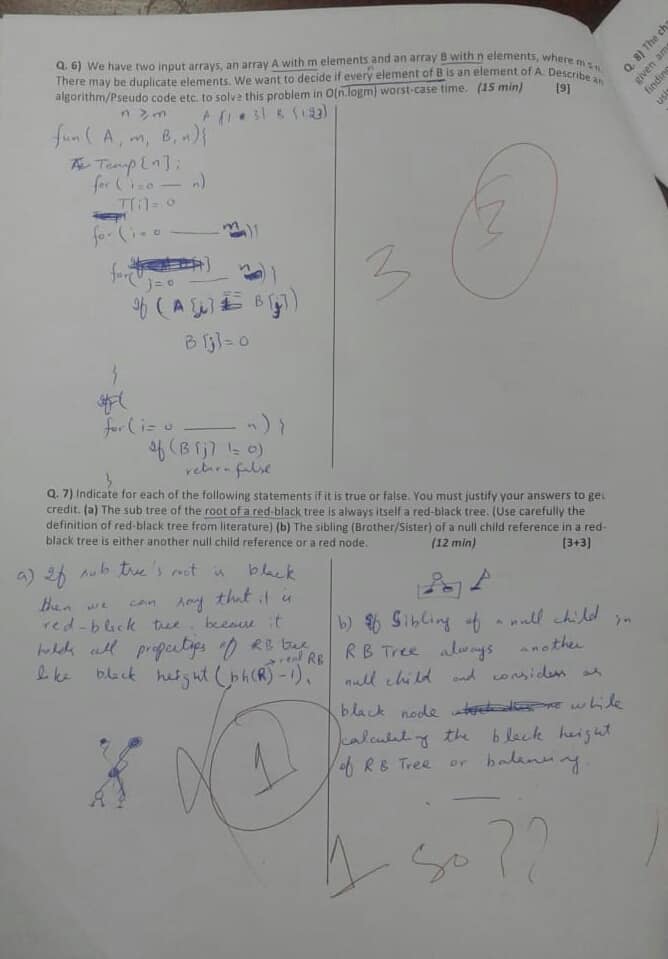 Q. 6) We have two input arrays, an array A with m elements and an array B with n elements, where m ≤ n.
There may be duplicate elements. We want to decide if every element of B is an element of A. Describe an
algorithm/Pseudo code etc. to solve this problem in O(n.logm) worst-case time. (15 min) [9]
n ≥ m
fun( A, m, B, n){
Temp[n];
for (i=0 — n)
T[i]=0
for (i=0 — m){
for( j=0 — n){
If ( A[i] == B[j])
B[j]=0
}
for(i=0 — n){
If (B[j] != 0)
return false
}
3
3
Q. 7) Indicate for each of the following statements if it is true or false. You must justify your answers to get
credit. (a) The sub tree of the root of a red-black tree is always itself a red-black tree. (Use carefully the
definition of red-black tree from literature) (b) The sibling (Brother/Sister) of a null child reference in a red-
black tree is either another null child reference or a red node. (12 min) [3+3]
a) If sub tree's root is black
then we can say that it is
red-black tree. because it
holds all properties of RB tree
real RB
like black height (bh(R)-1).
1
b) Sibling of a null child in
RB Tree always another
null child and considers as
black node while
calculating the black height
of RB Tree or balancing.
1 so ??
Q. 8) The
given